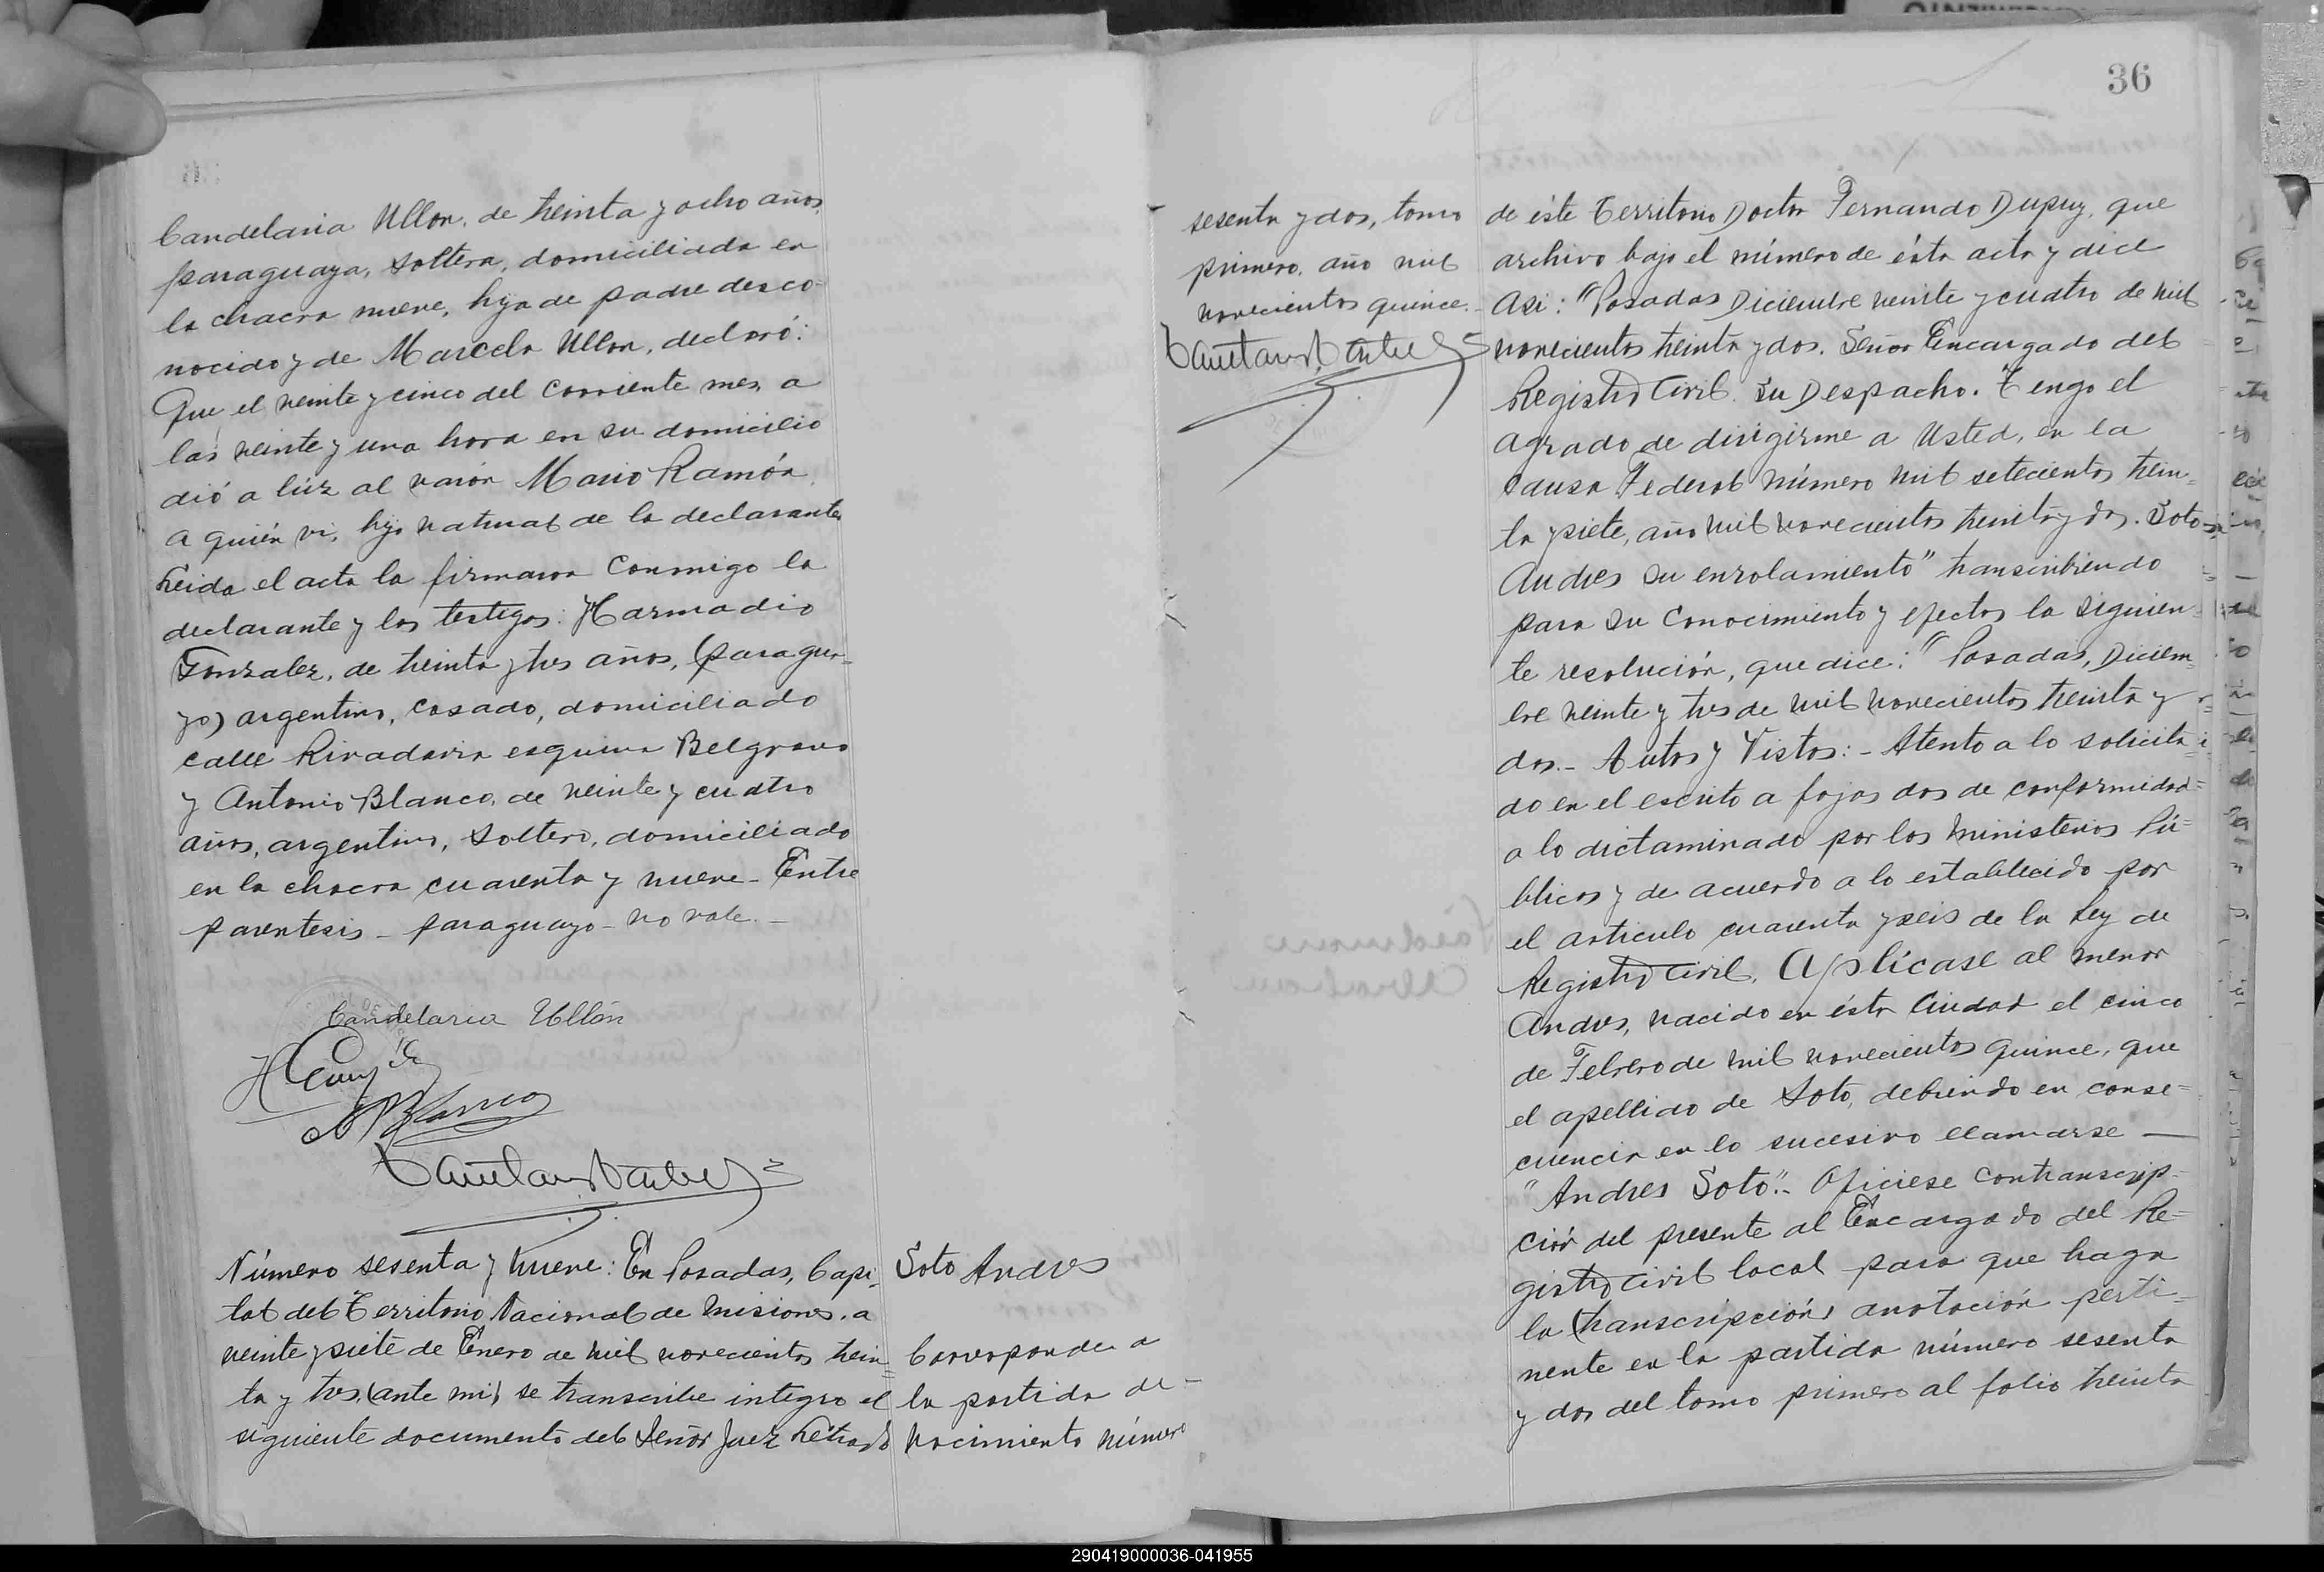 Candelaria Ullon, de treinta y ocho años,
paraguaya, soltera, domiciliada en
la chacra nueve, hija de padre desco-
nocido y de Marcela Ullon, declaró:
Que el veinte y cinco del corriente mes, a
las veinte y una hora en su domicilio
dió a lúz al varón Mario Ramón,
a quién vi, hijo natural de la declarante,
Leida el acta la firmaron conmigo la
declarante y los testigos: Harmodio
Gonzalez, de treinta y tres años, (paragua-
yo) argentino, casado, domiciliado
calle Rivadavia esquina Belgrano
y Antonio Blanco, de veinte y cuatro
años, argentino, soltero, domiciliado
en la chacra cuarenta y nueve - Entre
parentesis - paraguayo - no vale. -
Candelaria Ullón
Número sesenta y nueve: En Posadas, Capi-
tal del Territorio Nacional de Misiones, a
veinte y siete de Enero de mil novecientos trein-
ta y tres, (ante mi) se transcribe integro el
siguiente documento del Señor Juez Letrado
Soto Andres
Corresponde a
la partida de -
nacimiento número
36
sesenta y dos, tomo
primero, año mil
novecientos quince. -
de éste Territorio Doctor Fernando Dupuy, que
archivo bajo el número de ésta acta y dice
asi: "Posadas Diciembre veinte y cuatro de mil
novecientos treinta y dos. Señor Encargado del
Registro Civil. Su Despacho. Tengo el
agrado de dirigirme a Usted, en la
causa Federal número mil setecientos trein-
ta y siete, año mil novecientos treinta y dos. Soto
Andres su enrolamiento" transcribiendo
para su conocimiento y efectos la siguien-
te resolución, que dice: "Posadas, Diciem-
bre veinte y tres de mil novecientos treinta y
dos. - Autos y Vistos: - Atento a lo solicita-
do en el escrito a fojas dos de conformidad
a lo dictaminado por los Ministerios Pú-
blicos y de acuerdo a lo establecido por
el articulo cuarenta y seis de la Ley de
Registro Civil, Aplícase al menor
Andres, nacido en ésta Ciudad el cinco
de Febrero de mil novecientos quince, que
el apellido de Soto, debiendo en conse-
cuencia en lo sucesivo llamarse —
"Andres Soto". - Oficiese con transcrip-
ción del presente al Encargado del Re-
gistro Civil local para que haga
la (transcripción) anotación perti-
nente en la partida número sesenta
y dos del tomo primero al folio treinta
290419000036-041955